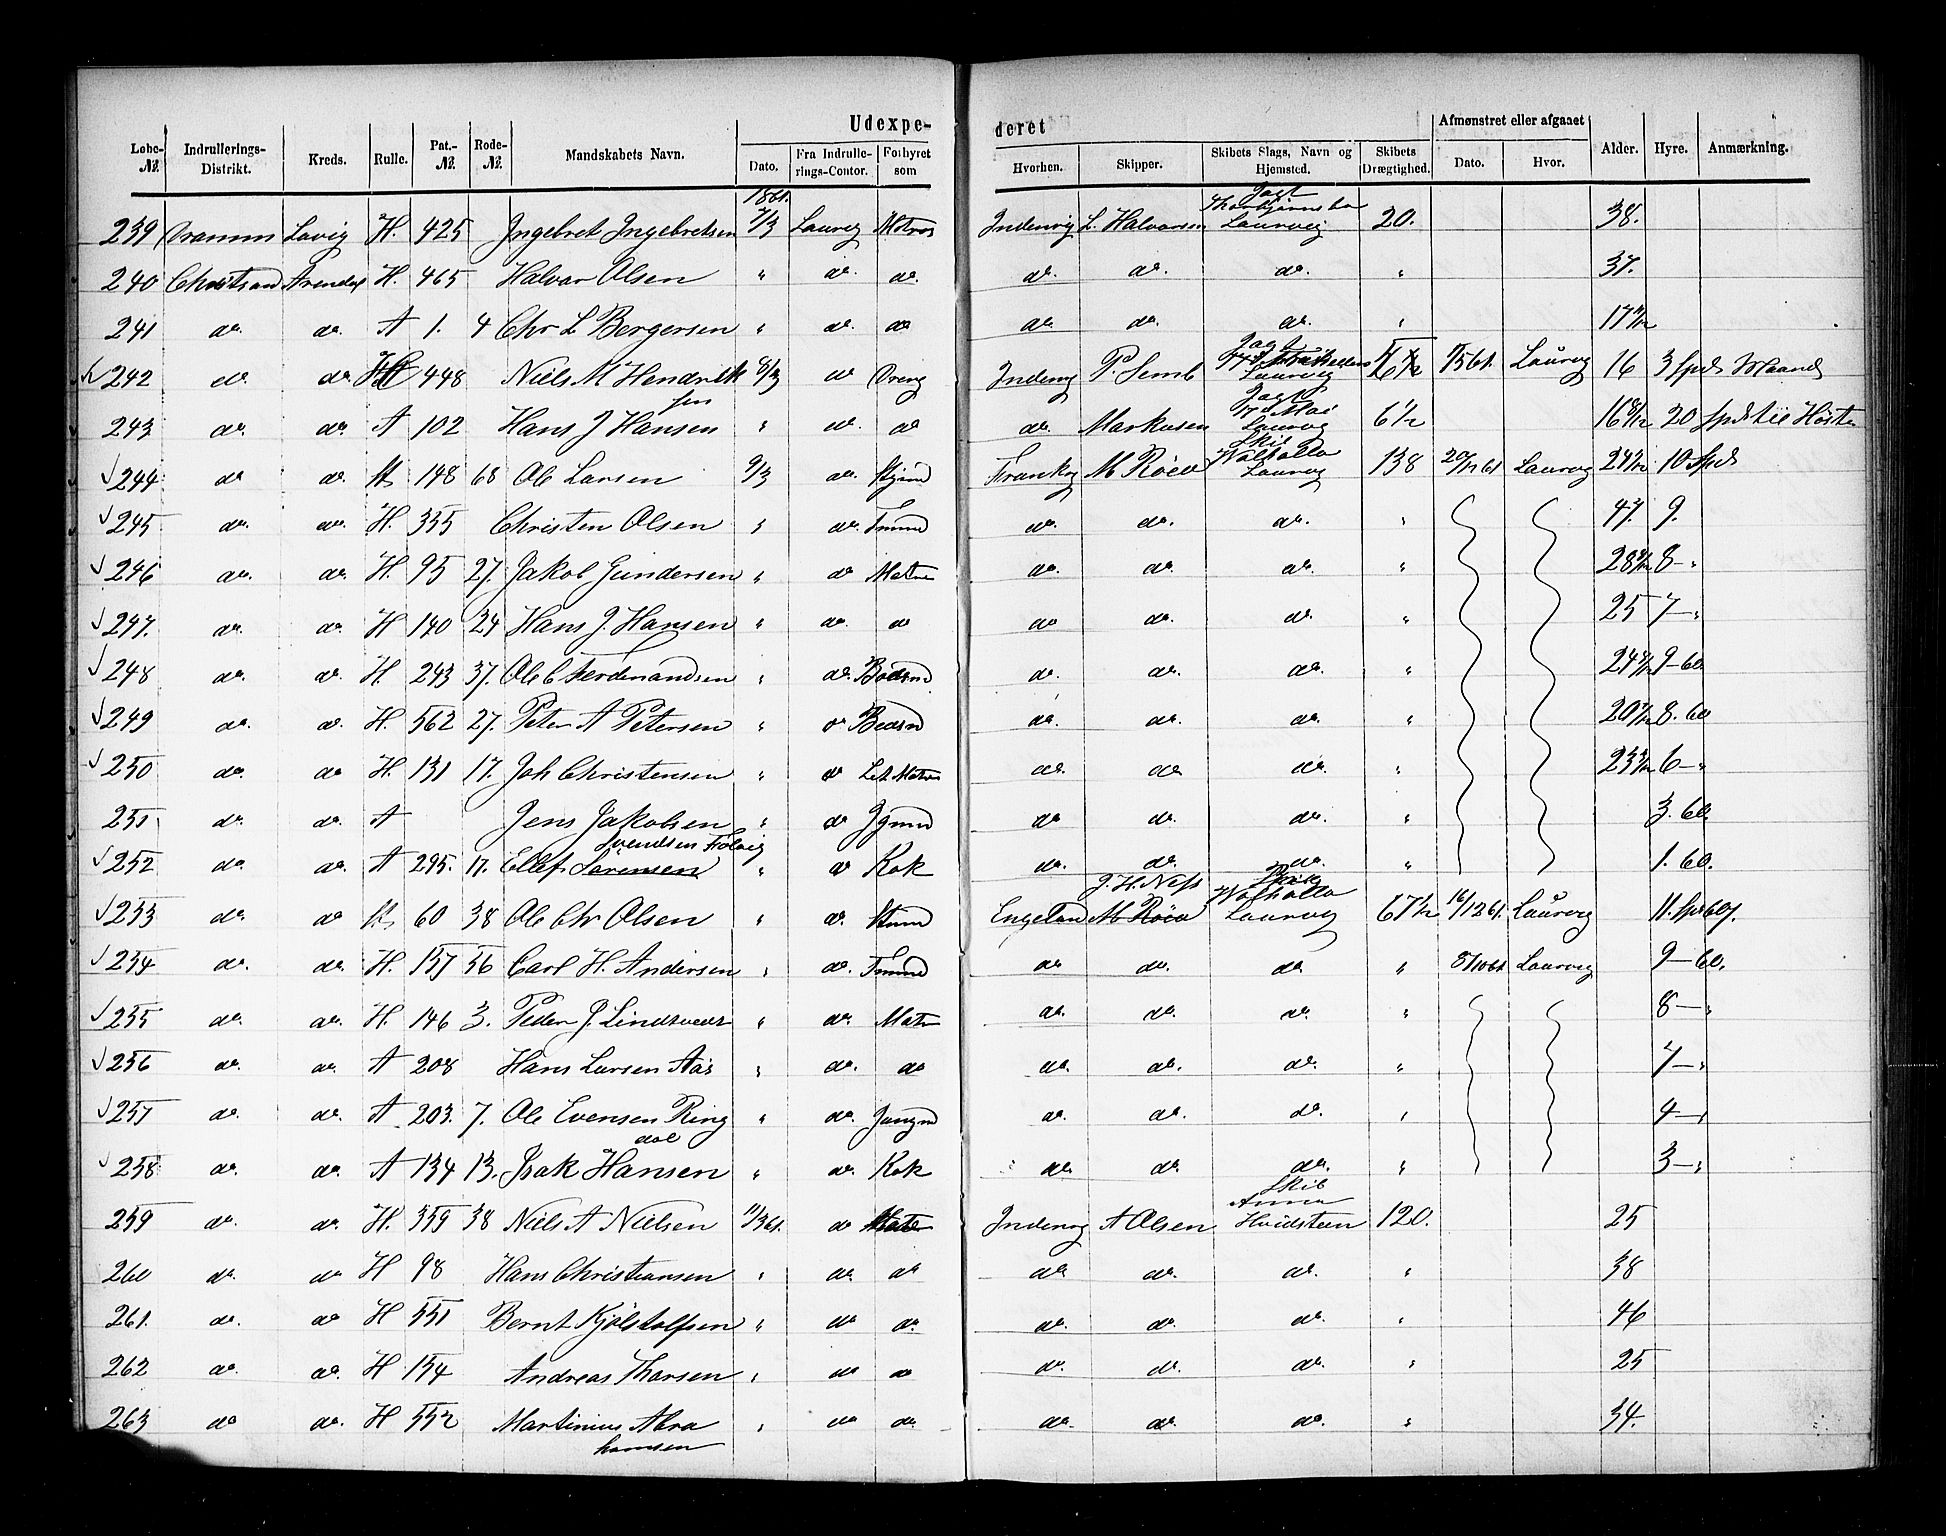 Udexpe- deret
Løbe-№. Indrullerings-Distrikt. Kreds. Rulle. Pat.-№. Rode-№. Mandskabets Navn. Dato. Fra Indrullerings-Contor. Forhyret som Hvorhen. Skipper. Skibets Slags, Navn og Hjemsted. Skibets Drægtighed. Afmønstret eller afgaaet Dato. Hvor. Alder. Hyre. Anmærkning.
1861.
239 H. 425 Ingebret Ingebretsen 7/3 Laurvig Matros Indenrig L. Halvorsen Jagt Laurvig 20. 38.
240 Christsand Arendal H. 465 Halvor Olsen " do. do. do. do. do. " 37.
241 do. do. A 1. 4 Chr L Bergersen " do. do do. do. do. "
242 do do 448 Niels M Hendrik sen 8/3 do Dreng Indenrig P. Semb Jagt Laurvig Laurvig 16 3 Spd Maaned
243 do. do. A 102 Hans J Hansen " do. do do. Markusen Jagt 17 Mai Laurvig 6 1/2 16 8/12 20 Spd til Høsten
244 do do. 148 68 Ole Larsen 9/3 do. Frankrig M Röed Skib Walhalla Laurvig 138 Laurvig 10 Spd
245 do. do. H. 355 Christen Olsen " do. Tmmd do. do. do. " 47. 9.
246 do. do. H. 95 27. Jakob Gundersen " do Matros do. do. do. " 8 - "
247. do. do. H 140 24 Hans J. Hansen " do. do do do. do. " 25 7 - "
248 do. do. H. 243 37. Ole C Ferdinandsen " do. Bødsmd do. do. do. " 9 - 60
249 do. do. H. 562 27. Peter A Petersen " do do. do. do. " 8. 60
250 do. do H. 131 17. Joh Christensen " do Let Matros do. do do. " 6 - "
251 do. do. A Jens Jakobsen " do Jgmd do do. do. " 3. 60
252 do do. A 295. 17. Ellef Sörensen Svendsen " do Kok do. do. do. " 1. 60.
253 do. do 60 38 Ole Chr Olsen " do. Engeland M Röed J. H. Ness Skib Walhalla Laurvig 67 1/2 16/12 61. Laurvig 11. Spd 60.
254 do. do. H. 157 36 Carl H. Andersen " do. Tmmd do do. do " 8/10 61 Laurvig 9 - 60.
255 do. do. H. 146 3. Peder J. " do. Matr do. do. do. " 8 - "
256 do. do. A 208 Hans Larsen Aas " do. do do. do. do. " 7 - "
257 do. do. A 203. 7. Ole Evensen Ring dal " do. Jungmd do. do. do. " 4 - "
258 do. do. A 134 13. Isak Hansen " do. Kok do. do. do. " 3 - "
259 do. do. H. 359 38 Niels A Nielsen 11/3 61. do Matr Indenrig A Olsen Skib Anna Hvidsteen 120. 25
260 do. do H 98 Hans Christiansen " do do do do. do. " 38
261. do. do H 551 Bernt Kjølstolfsen " do do. do. do. do. " 46
262 do. do. H 154 Andreas Thorsen " do do do. do. do. " 25
263 do do. H 552 Martinius Abra hamsen " do do. do. do. do. " 34.